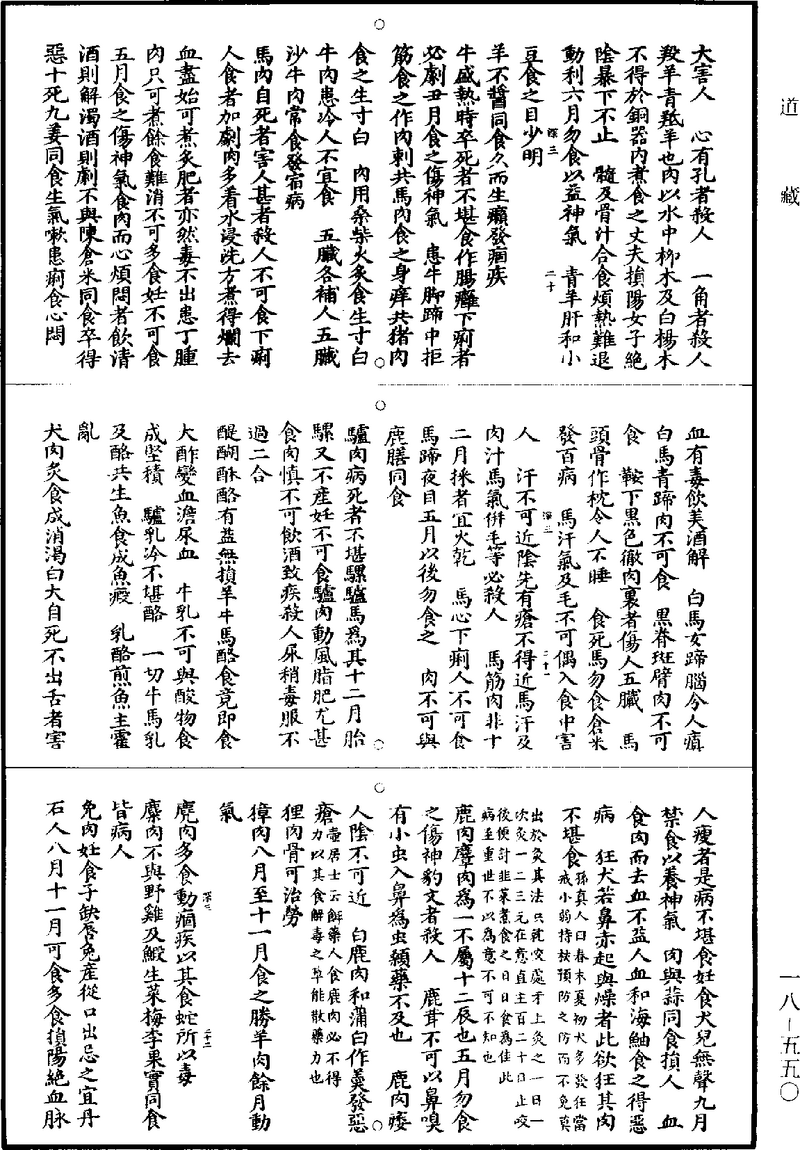 道藏
大害人　心有孔者殺人　一角者殺人
羖羊青羝羊也肉以水中柳木及白楊木
不得於銅器內煮食之丈夫損陽女子絕
陰暴下不止　髓及骨汁合食煩熱難退
動利六月勿食以益神氣　青羊肝和小
豆食之目少明
羊不醬同食久而生癩發痼疾
牛盛熱時卒死者不堪食作腸癰下痢者
必劇丑月食之傷神氣　患牛脚蹄中拒
筋食之作肉刺共馬肉食之身痒共猪肉
食之生寸白　肉用桑柴火炙食生寸白
牛肉患冷人不宜食　五臟各補人五臟
沙牛肉常食發宿病
馬肉自死者害人甚者殺人不可食下痢
人食者加劇肉多看水浸洗方煮得爛去
血盡始可煮炙肥者亦然毒不出患丁腫
肉只可煮餘食難消不可多食妊不可食
五月食之傷神氣食肉而心煩悶者飲清
酒則解濁酒則劇不與陳倉米同食卒得
惡十死九姜同食生氣嗽患痢食心悶
血有毒飲美酒解　白馬玄蹄腦令人癲
白馬青蹄肉不可食　黑脊斑臂肉不可
食　鞍下黑色徹肉裏者傷人五臟　馬
頭骨作枕令人不睡　食死馬勿食倉米
發百病　馬汗氣及毛不可偶入食中害
人　汗不可近陰先有瘡不得近馬汗及
肉汁馬氣倂毛等必殺人　馬筋肉非十
二月採者宜火乾　馬心下痢人不可食
馬蹄夜目五月以後勿食之　肉不可與
鹿膳同食
驢肉病死者不堪騾驢馬爲其十二月胎
騾又不產妊不可食驢肉動風脂肥尤甚
食肉慎不可飲酒致疾殺人尿稍毒服不
過二合
醍醐酥酪有益無損羊牛馬酪食竟即食
大酢變血澹尿血　牛乳不可與酸物食
成堅積　驢乳冷不堪酪　一切牛馬乳
及酪共生魚食成魚瘕　乳酪煎魚主霍
亂
犬肉炙食成消渴曰犬自死不出舌者害
人瘦者是病不堪食妊食犬兒無聲九月
禁食以養神氣　肉與蒜同食損人　血
食肉而去血不益人血和海鮋食之得惡
病　狂犬若鼻赤起與燥者此欲狂其肉
不堪食孫真人曰春末夏初犬多發狂當
戒小弱持杖預防之防而不免莫
出於灸其法只就咬處牙上灸之一日一
次灸一二三元在意直主百二十日止咬
後便討韭菜煮食之日日食爲佳此
病至重世不以爲意不可不知也
鹿肉麞肉爲一不屬十二辰也五月勿食
之傷神豹文者殺人　鹿茸不可以鼻嗅
有小虫入鼻爲虫顙藥不及也　鹿肉痿
人陰不可近　白鹿肉和蒲白作羹發惡
瘡壺居士云餌藥人食鹿肉必不得
力以其食解毒之草能散藥力也
狸肉骨可治勞
獐肉八月至十一月食之勝羊肉餘月動
氣
麂肉多食動痼疾以其食蛇所以毒
麋肉不與野雞及鰕生菜梅李果實同食
皆病人
兔肉妊食子缺唇兔產從口出忌之宜丹
石人八月十一月可食多食損陽絕血脉
一八－五五〇